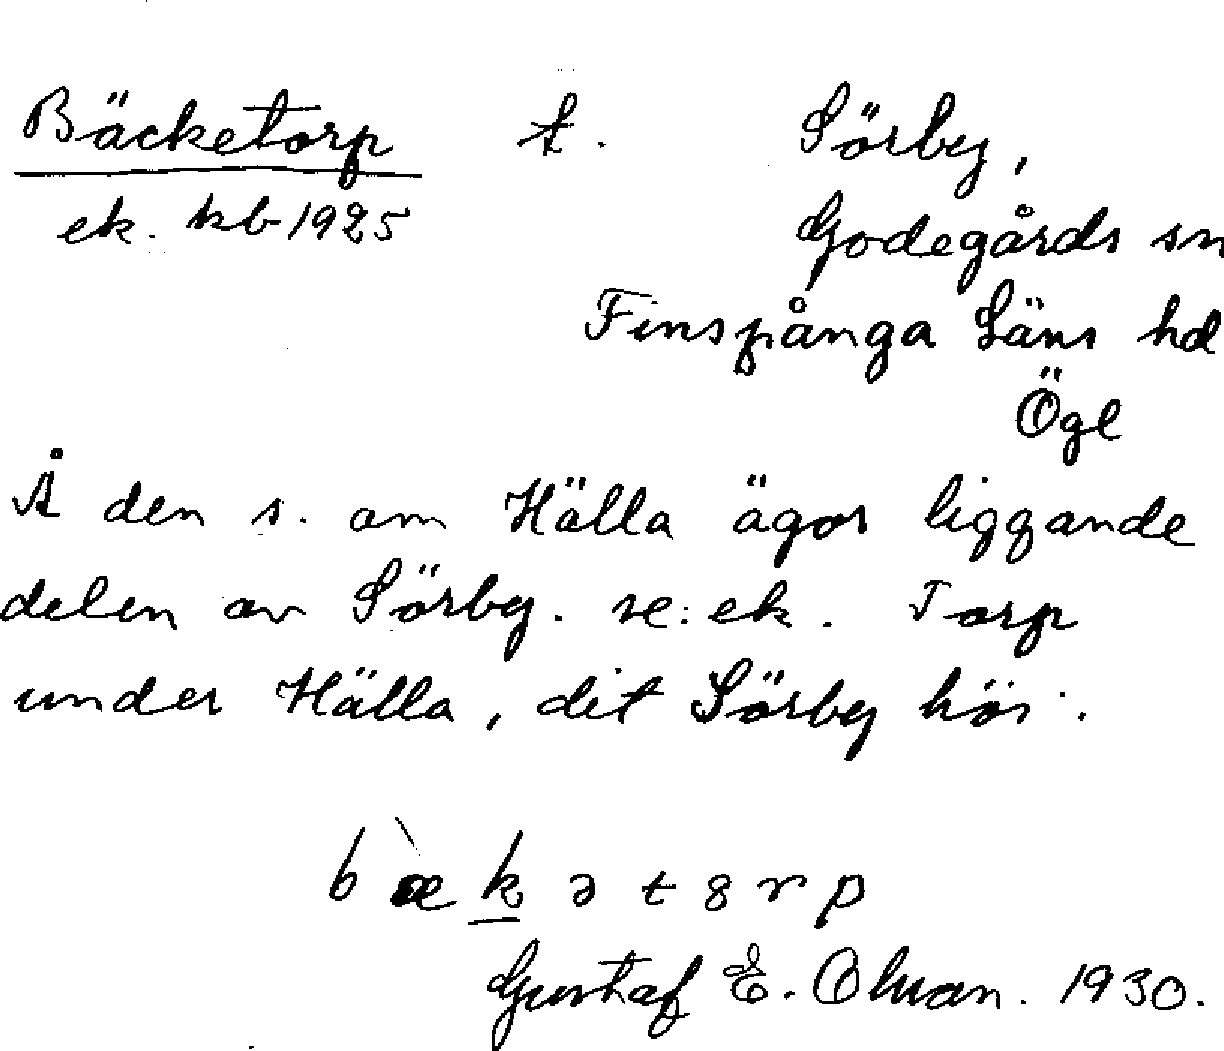 Bäcketorp t. Sörby,
ek. kb 1925 Godegårds sn
Finspånga Läns hd
Ögl
Å den s. om Hälla ägor liggande
delen av Sörby. se: ek. Torp
under Hälla, dit Sörby hör.
b æ̀ k ə t 8 r p
Gustaf E. Olsson. 1930.